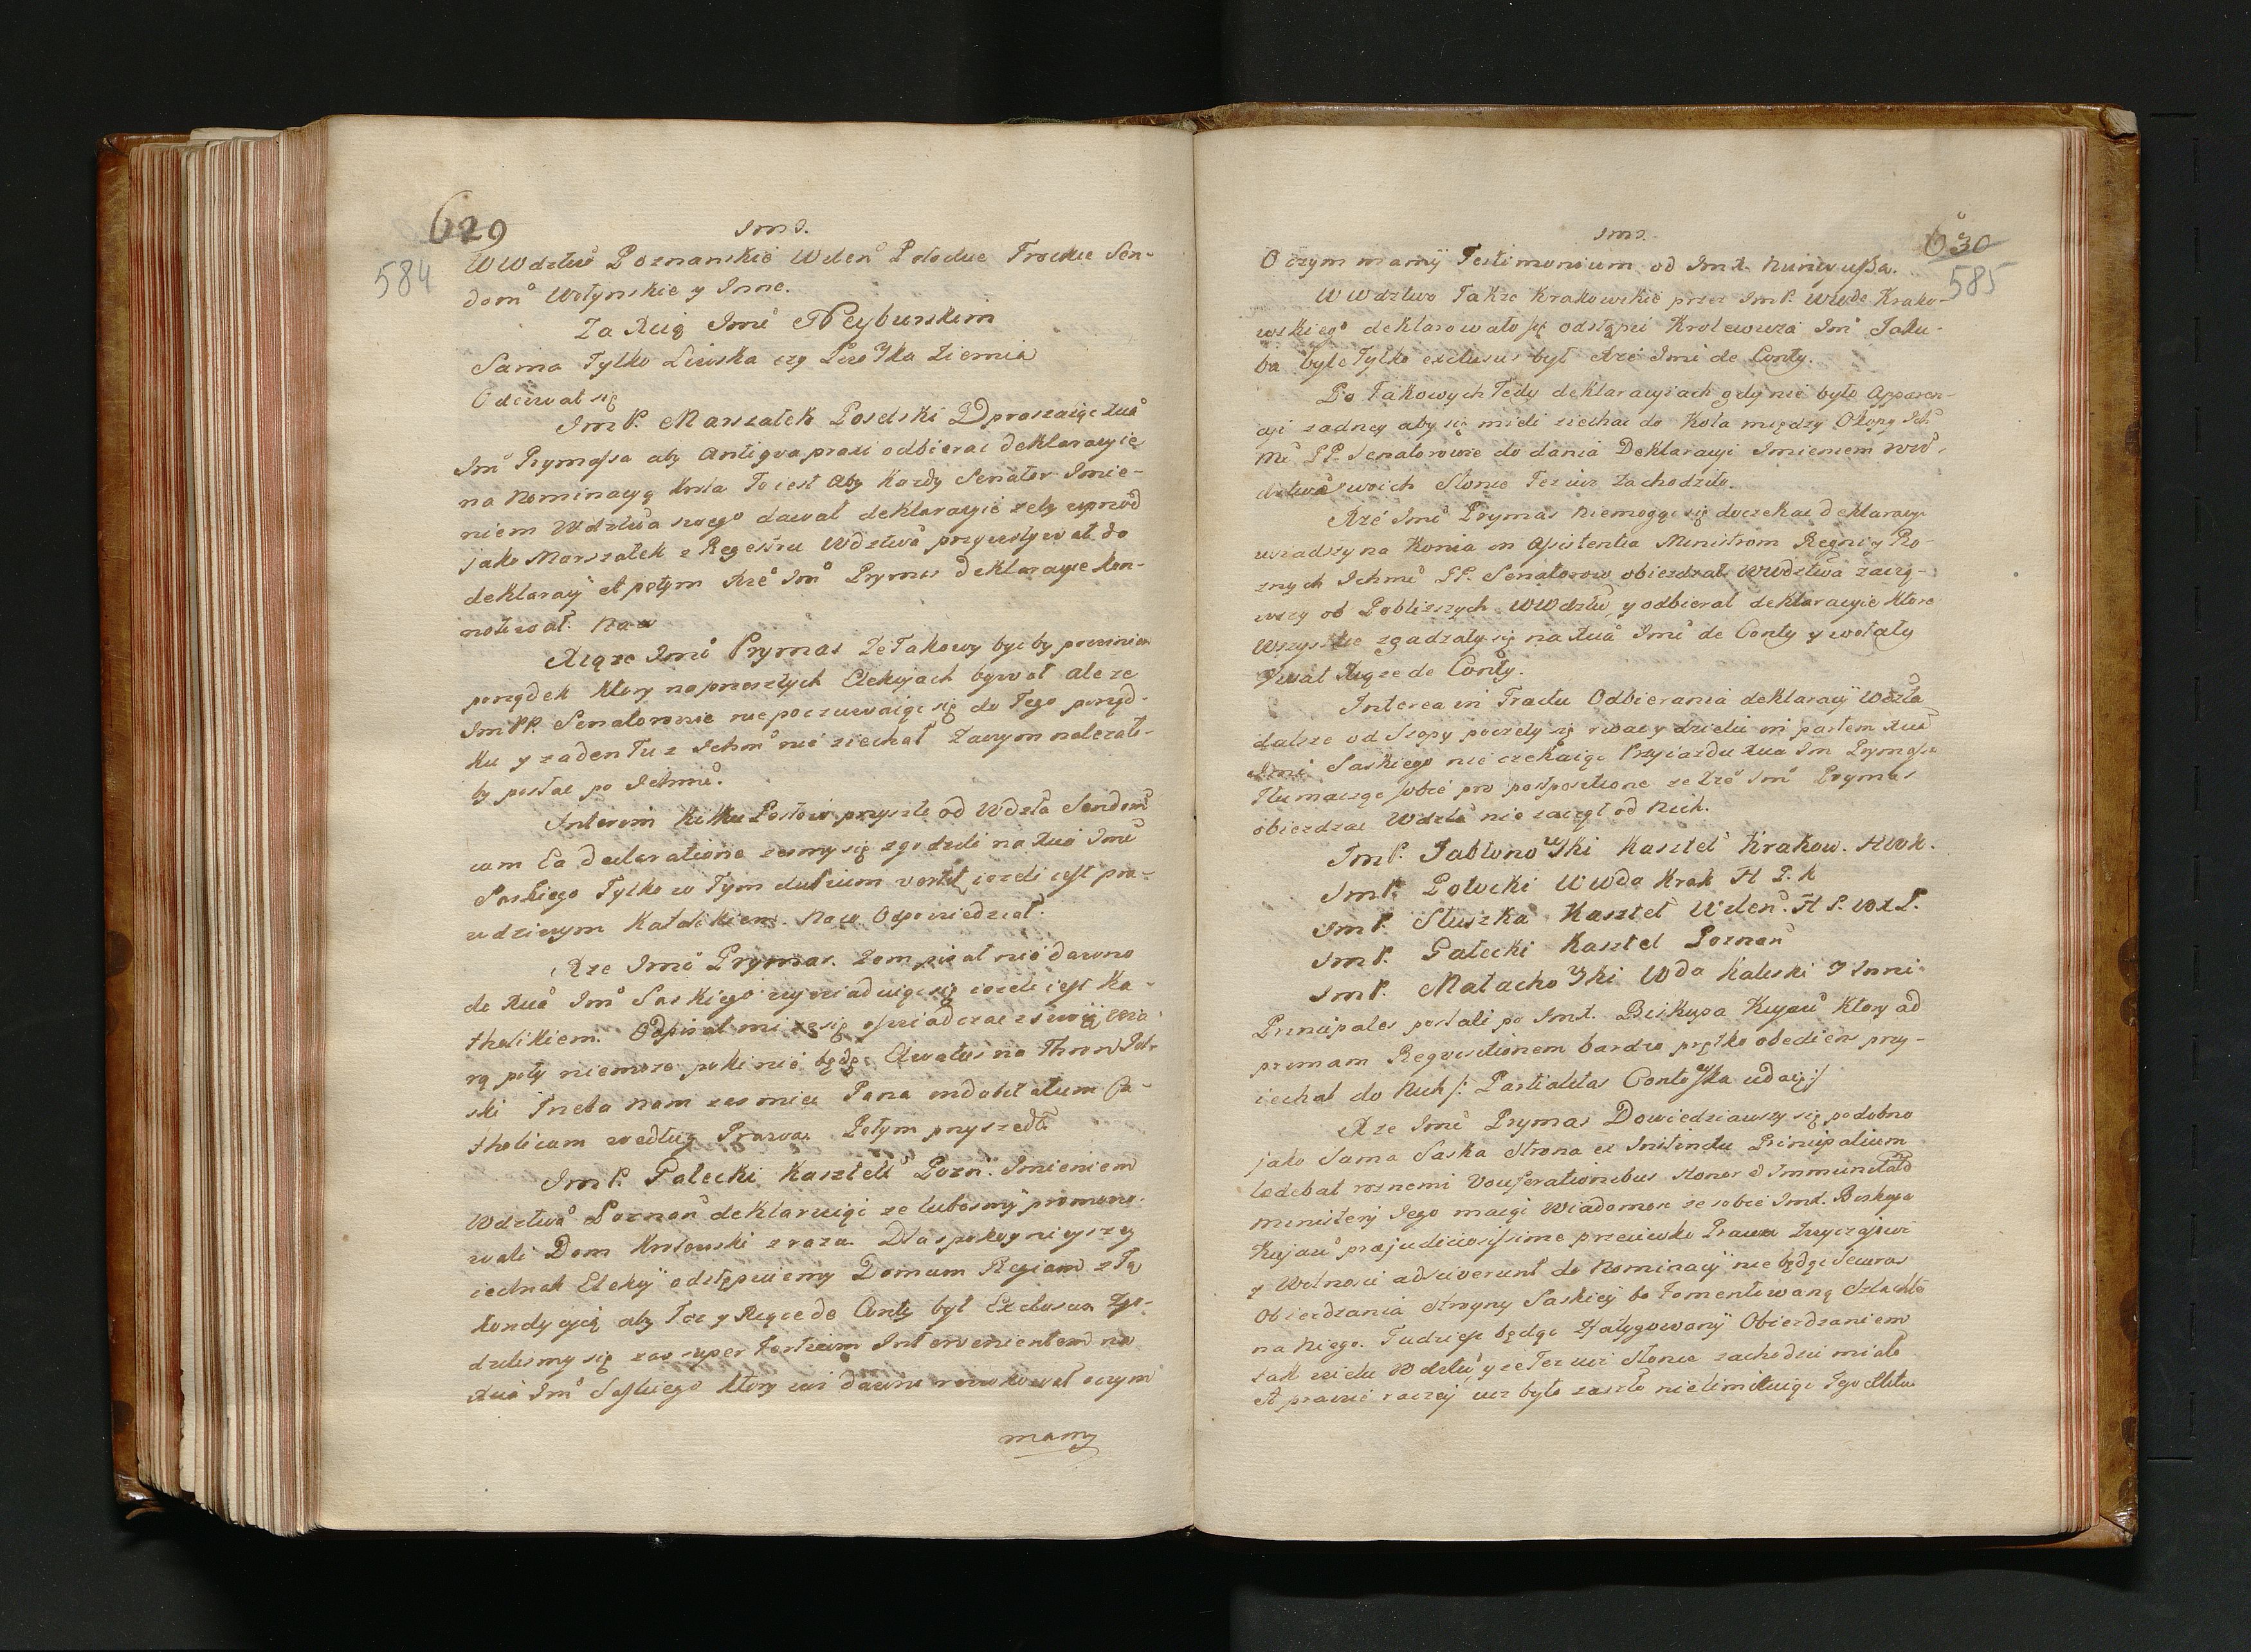 629
584
Imś.
WWdztwo Poznanskie Wilen Połockie Trockie Sen-
dom Wołynskie y Inne.
Za Xcią Imć Neyburskim
Sama Tylko Liwska czy Ziemia
Odezwał się
ImP. Marszałek Poselski Upraszaiąc Xcia
Im Prymassa aby Antiqva praxi odbierac deklaracyie
na Nominacyą Krola To iest Aby Kazdy Senator Imie-
niem Wdztwa swego dawał deklaracyie zeby wprzod
jako Marszałek z Regestru Wdztwa przywoływał do
deklaracyi A potym Xze Im Prymas deklaracyie kon-
notował. Na co
Xiąze Imć Prymas Ze Takowy byc by powinien
porządek Ktory na przeszłych Elekcyiach bywał ale ze
ImPP. Senatorowie nie poczuwaiąc się do Tego porząd-
ku y zaden Tu z Ichm nie ziechał Zaczym nalezało-
by posłac po Ichmć.
Interim Kilku Posłow przyszło od Wdztwa Sendom
cum Ea declaratione zesmy się zgodzili na Xcia Imć
Saskiego Tylko w Tym dubium vertit, iezeli iest pra-
wdziwym Katolikiem. Na co Odpowiedział.
Xze Imć Prymas. Zem pisał nie dawno
do Xcia Im Saskiego wywiaduiąc się iezeli iest Ka-
tholikiem. Odpisał mi ze się oswiadczac z swoią wia-
rą poty niemoze poki nie będę Elevatus na Thron Pol-
ski Trzeba nam zas miec Pana indubitatum Ca-
tholicum według Prawa. Potym przyszedł
ImP. Gałecki Kasztell Pozn. Imieniem
Wdztwa Poznan deklaruiąc ze lubosmy promowo-
wali Dom Krolewski zrazu. Dla spokoynieyszey
iednak Elekcyi odstępuiemy Domum Regiam z Tą
kondycyią aby Tez y Xiąze de Conty był Exclusus Zgo-
dzilismy się zas super tertium Intervenientem na
Xcia Im Saskiego ktory iuz dawno rewokował oczym
mamy
Imś.
630
585
O czym mamy Testimonium od ImX. Nuncyussa.
WWdztwo Takze Krakowskie przez ImP. WWdę Krako-
wskiego deklarowało się odstąpic Krolewicza Im Jaku-
ba byle Tylko exclusus był Xze Imć de Conty.
Po Takowych Tedy deklaracyiach gdy nie było Apparen-
cyi zadney aby się mieli ziechac do Koła między Okopy Ich
Mć PP. Senatorowie do dania Deklaracyi Imieniem Wo-
dztwa swoich Słonce Tez iuz Zachodziło.
Xze Imć Prymas Niemogąc się doczekac deklaracyi
wsiadszy na Konia in Assistentia Ministrorum Regni y Ro-
znych Ichmć PP. Senatorow obiezdzał WWdztwa zaczą-
wszy od Pobliszszych WWdztw, y odbierał deklaracyie ktore
Wszystkie zgadzały się na Xcia Imć de Conty y wołały
Vivat Xiąze de Conty.
Interea in Tractu Odbierania deklaracyi Wdztwa
dalsze od Szopy poczeły się rwac y dzielic in partem Xcia
Imć Saskiego nie czekaiąc Przyiazdu Xcia Im Prymassa
Tłumacząc sobie pro postpositione ze Xze Im Prymas
obiezdzac Wdztw nie zaczął od Nich.
ImP. Jabłonowski Kasztel Krakow. HWK.
ImP. Potocki WWda Krak H P. K
ImP. Słuszka Kasztel Wilen. H P. WXL.
ImP. Gałecki Kasztel Poznan
ImP. Małachowski Wda Kaliski Y Inni
Principales posłali po ImX. Biskupa Kujaw Ktory ad
primam Reqvisitionem bardzo prętko obediens przy-
iechał do Nich /: Partialitas Contowska udaię :/
Xze Imć Prymas Dowiedziawszy się podobno
jako Sama Saska Strona ex Instinctu Principalium
laedebat roznemi Vociferationibus Honor & Immunitatem
Ministerij Iego maiąc Wiadomosc ze sobie ImX. Biskup
Kujaw praejudiciosissime przeciwko Prawu Zwyczaiowi
y Wolnosci adsciverunt do Nominacyi nie będąc Securus
Obiezdzania Strony Saskiey bo Fomentowaną Szlachtę
na Niego. Tudziesz będąc Zfatygowany Obiezdzaniem
tak wielu Wdztw, y ze Tez iuz Słonce zachodzic miało
A prawie raczey iuz było zaszło nielimituiąc Tego Aktu